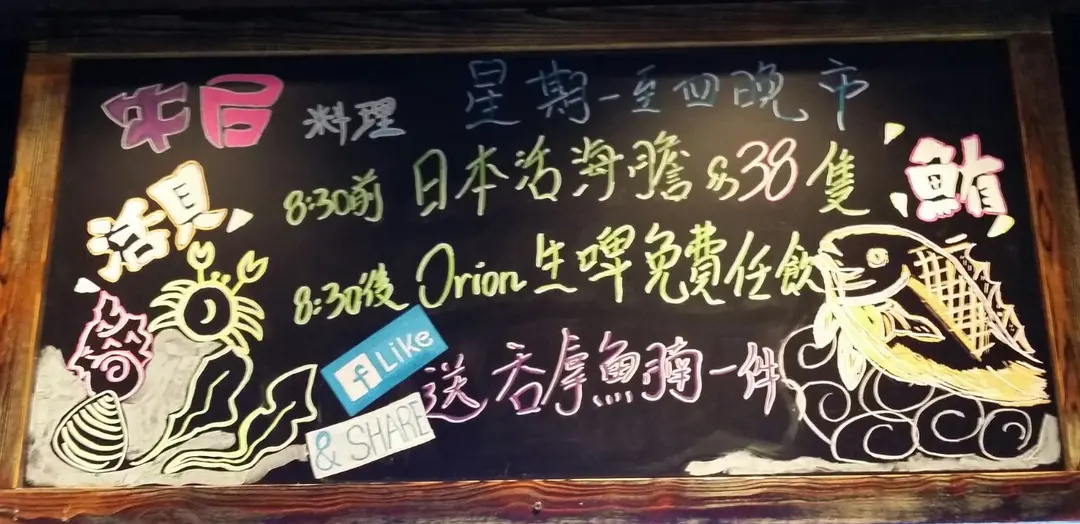 料理 星期一至四晚市
活貝
鮪
8:30前 日本活海膽 $38隻
8:30後 Orion生啤免費任飲
f Like
& SHARE
送吞拿魚腩一件